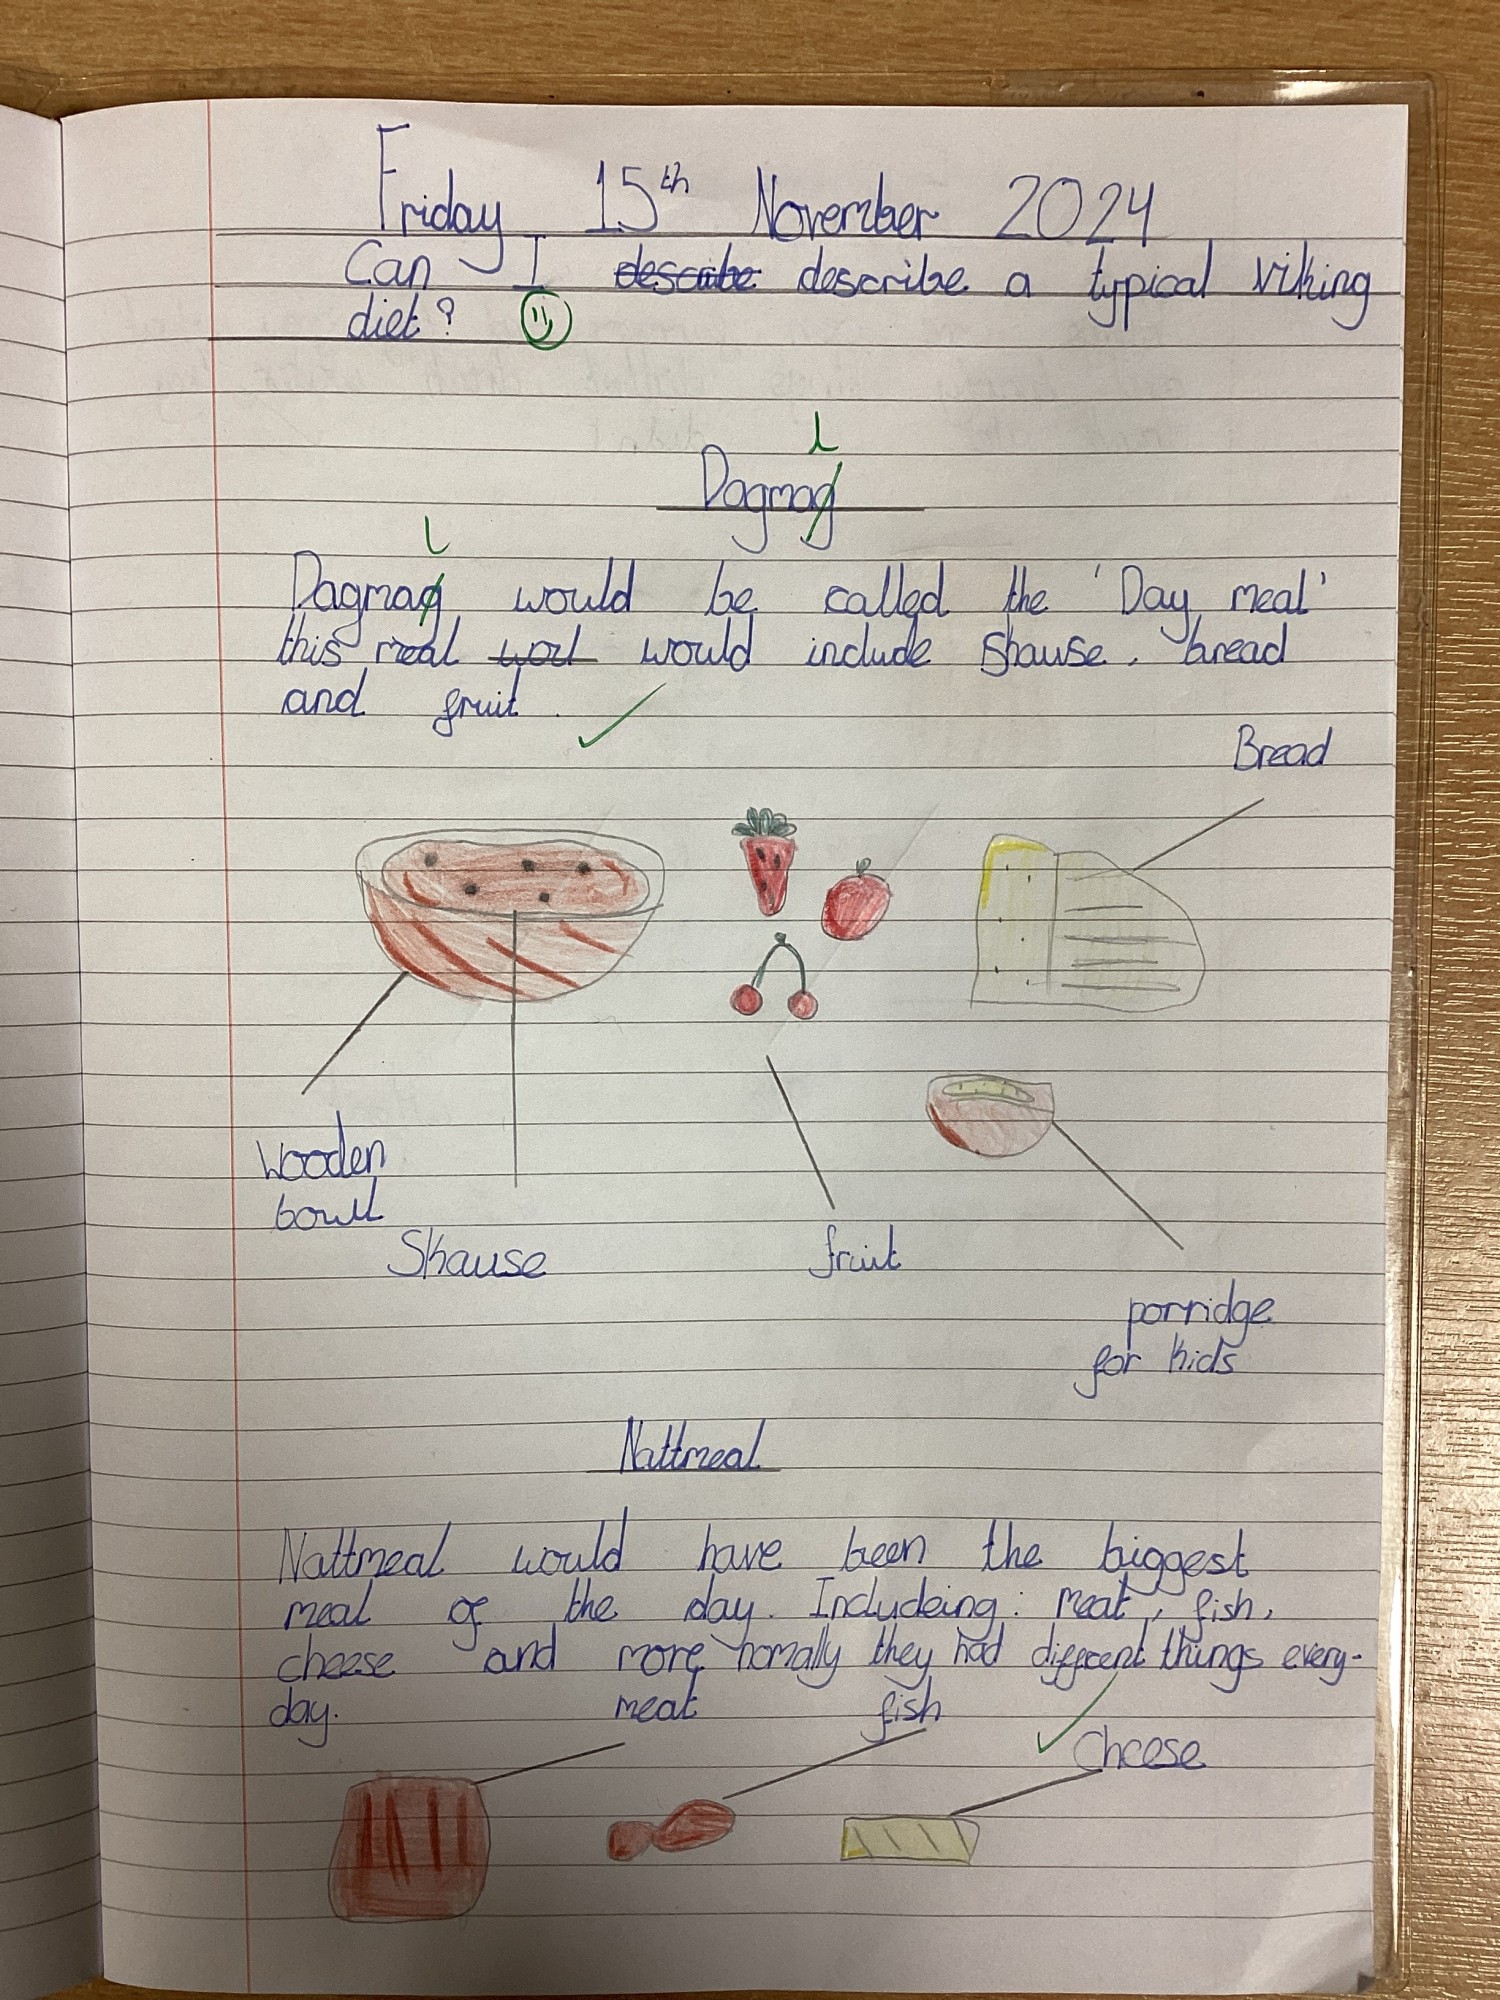 Friday 15th November 2024
Can I describe describe a typical Viking
diet?
l
Dagmag
l
Dagmag would be called the 'Day meal'
this meal woul would include Skause, bread
and fruit.
Bread
Wooden
bowll
Skause
fruit
porridge
for kids
Nattmeal
Nattmeal would have been the biggest
meal of the day. Includeing: meat, fish,
cheese and more nomally they had different things every-
day.
meat
fish
Cheese